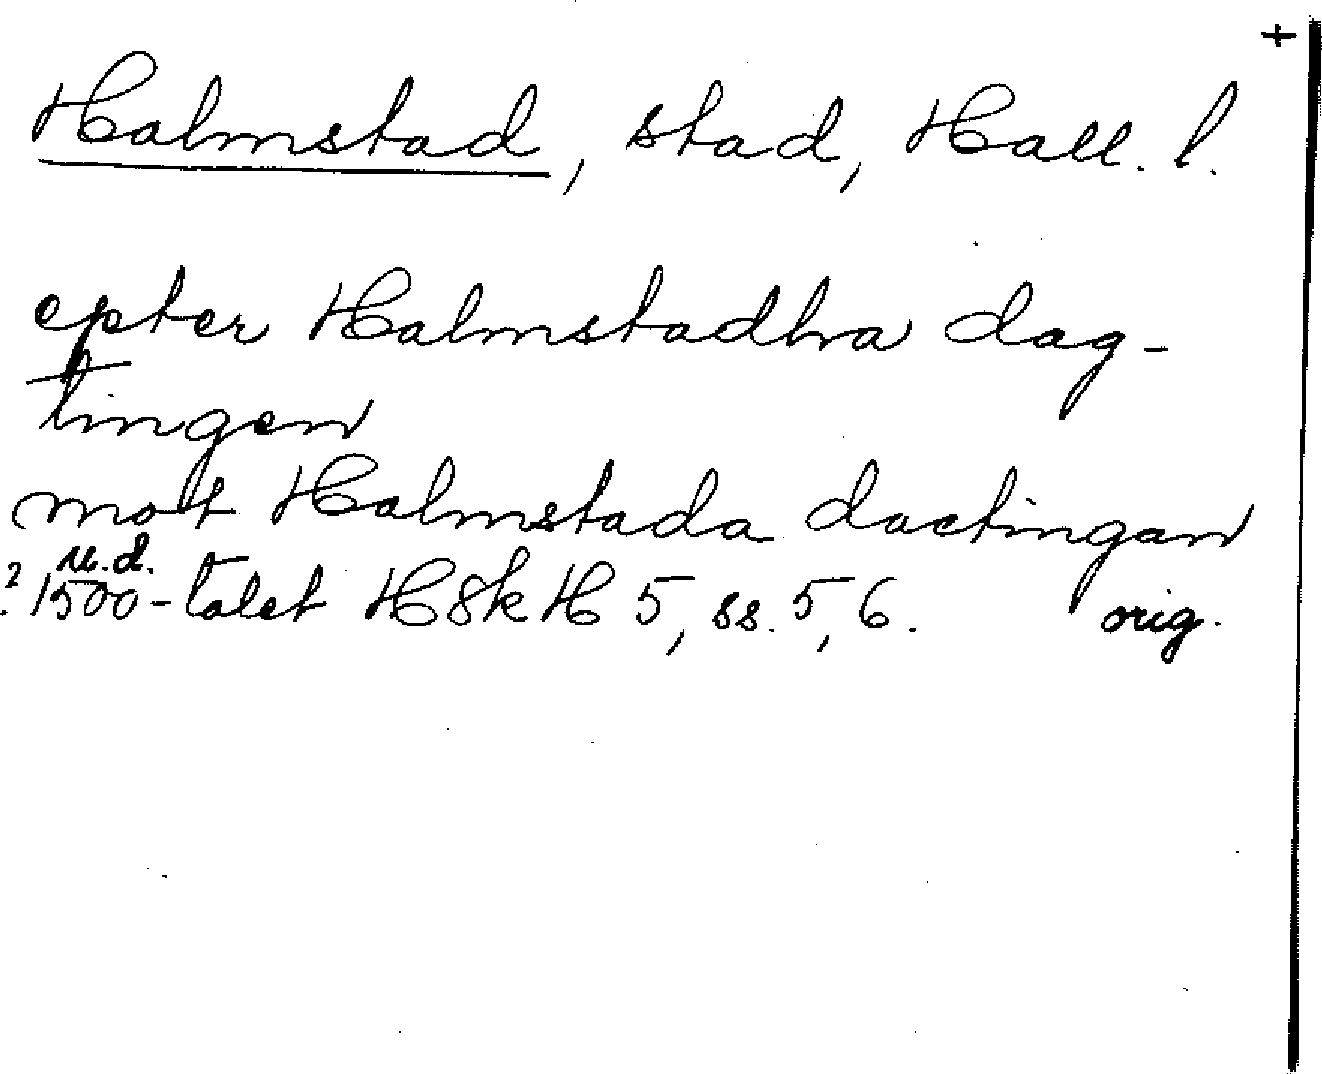 +
Halmstad, stad, Hall. l.
epter Halmstadha dag-
tingen
mot Halmstada dactingan
u.d.
? 1500-talet HSkH 5, ss. 5, 6. orig.